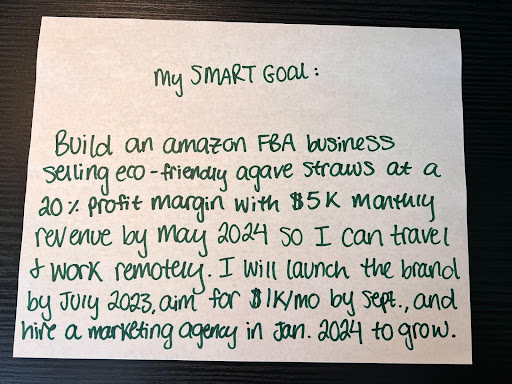 My SMART GOAL:
Build an amazon FBA business
selling eco-friendly agave straws at a
20% profit margin with $5K monthly
revenue by May 2024 so I can travel
& work remotely. I will launch the brand
by July 2023, aim for $1K/mo by Sept., and
hire a marketing agency in Jan. 2024 to grow.